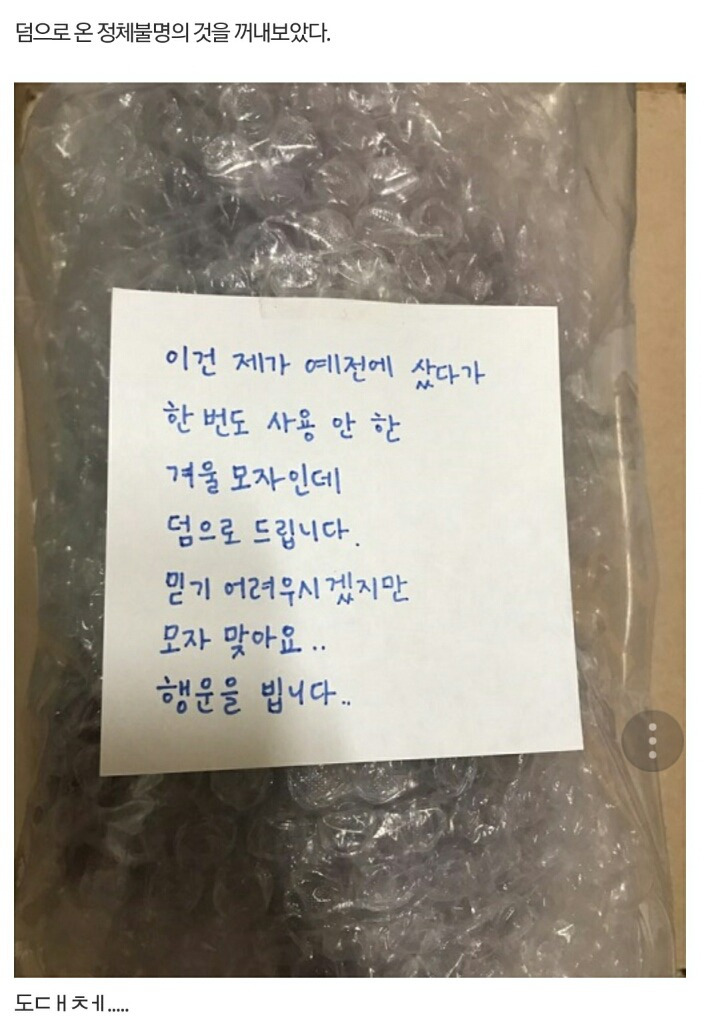 덤으로 온 정체불명의 것을 꺼내보았다.
이건 제가 예전에 샀다가
한 번도 사용 안 한
겨울 모자인데
덤으로 드립니다.
믿기 어려우시겠지만
모자 맞아요..
행운을 빕니다..
도ㄷㅐㅊㅔ.....